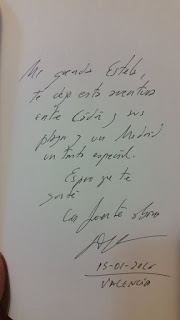 Mi querida Estela,
te dejo esta aventura
entre Cádiz y sus
playas y un Madrid
un tanto especial.
Espero que te
guste
Un fuerte abrazo
15-01-2016
VALENCIA